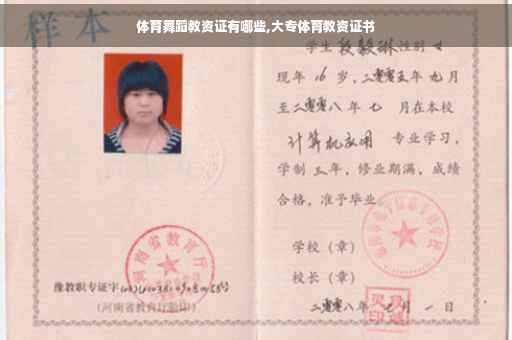 体育舞蹈教资证有哪些,大专体育教资证书
样本
学生段毅琳性别女
现年16岁,二零零五年九月
至二零零八年七月在本校
计算机应用专业学习,
学制三年,修业期满,成绩
合格,准予毕业
学校(章)
校长(章)
二零零八年七月一日
河南省教育厅
豫教职专证字
(河南省教育厅验印)